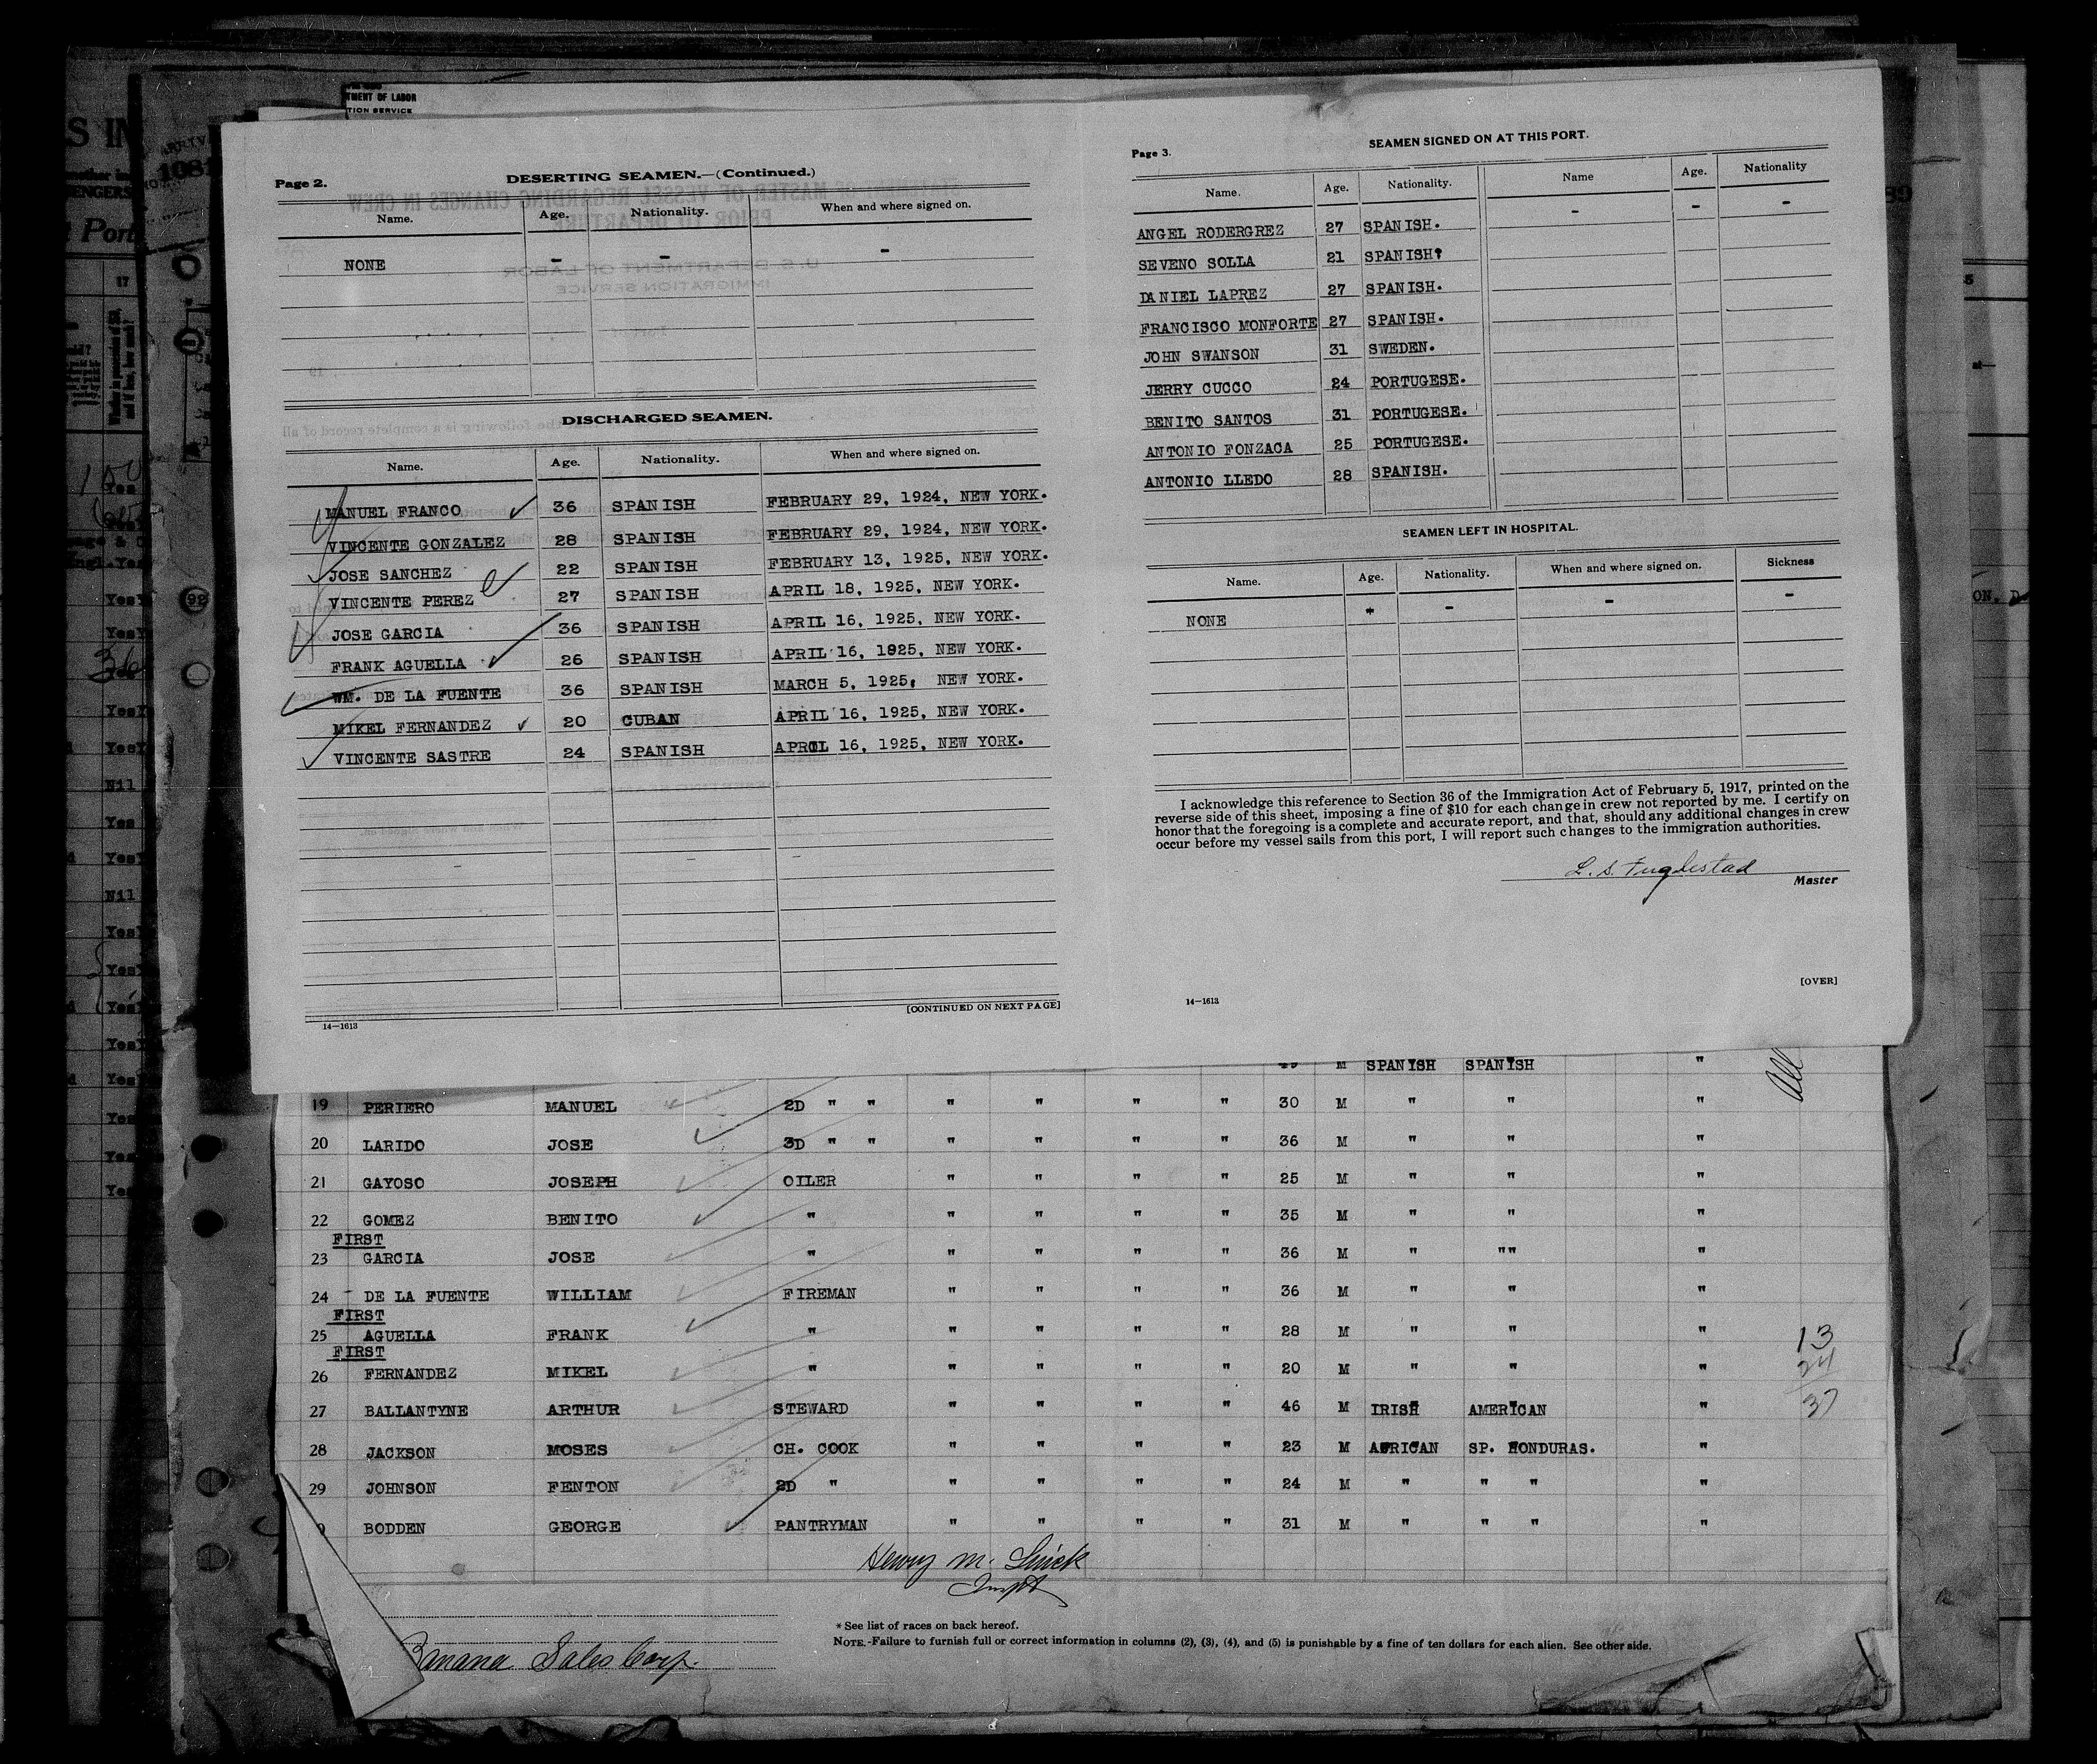 TMENT OF LABOR
TION SERVICE
Page 2.
DESERTING SEAMEN.—(Continued.)
Name. Age. Nationality. When and where signed on.
NONE - - -
DISCHARGED SEAMEN.
Name. Age. Nationality. When and where signed on.
MANUEL FRANCO 36 SPANISH FEBRUARY 29, 1924, NEW YORK.
VINCENTE GONZALEZ 28 SPANISH FEBRUARY 29, 1924, NEW YORK.
JOSE SANCHEZ 22 SPANISH FEBRUARY 13, 1925, NEW YORK.
VINCENTE PEREZ 27 SPANISH APRIL 18, 1925, NEW YORK.
JOSE GARCIA 36 SPANISH APRIL 16, 1925, NEW YORK.
FRANK AGUELLA 26 SPANISH APRIL 16, 1925, NEW YORK.
WM. DE LA FUENTE 36 SPANISH MARCH 5, 1925, NEW YORK.
MIKEL FERNANDEZ 20 CUBAN APRIL 16, 1925, NEW YORK.
VINCENTE SASTRE 24 SPANISH APRIL 16, 1925, NEW YORK.
[CONTINUED ON NEXT PAGE]
14—1613
Page 3.
SEAMEN SIGNED ON AT THIS PORT.
Name. Age. Nationality. Name Age. Nationality
- - -
ANGEL RODERGREZ 27 SPANISH.
SEVENO SOLLA 21 SPANISH.
DANIEL LAPREZ 27 SPANISH.
FRANCISCO MONFORTE 27 SPANISH.
JOHN SWANSON 31 SWEDEN.
JERRY CUCCO 24 PORTUGESE.
BENITO SANTOS 31 PORTUGESE.
ANTONIO FONZACA 25 PORTUGESE.
ANTONIO LLEDO 28 SPANISH.
SEAMEN LEFT IN HOSPITAL.
Name. Age. Nationality. When and where signed on. Sickness
NONE * - - -
I acknowledge this reference to Section 36 of the Immigration Act of February 5, 1917, printed on the
reverse side of this sheet, imposing a fine of $10 for each change in crew not reported by me. I certify on
honor that the foregoing is a complete and accurate report, and that, should any additional changes in crew
occur before my vessel sails from this port, I will report such changes to the immigration authorities.
L. S. Fuglestad
Master
[OVER]
14—1613
M SPANISH SPANISH "
All
19 PERIERO MANUEL 2D " " " " " " 30 M " " "
20 LARIDO JOSE 3D " " " " " " 36 M " " "
21 GAYOSO JOSEPH OILER " " " " 25 M " " "
22 GOMEZ BENITO " " " " " 35 M " " "
FIRST
23 GARCIA JOSE " " " " " 36 M " "" "
24 DE LA FUENTE WILLIAM FIREMAN " " " " 36 M " " "
FIRST
25 AGUELLA FRANK " " " " " 28 M " " "
FIRST
26 FERNANDEZ MIKEL " " " " " 20 M " " "
27 BALLANTYNE ARTHUR STEWARD " " " " 46 M IRISH AMERICAN "
28 JACKSON MOSES CH. COOK " " " " 23 M AFRICAN SP. HONDURAS. "
29 JOHNSON FENTON 2D " " " " " 24 M " " " "
BODDEN GEORGE PANTRYMAN " " " " 31 M " " " "
13
24
37
Henry M.
Inspt
* See list of races on back hereof.
NOTE.-Failure to furnish full or correct information in columns (2), (3), (4), and (5) is punishable by a fine of ten dollars for each alien. See other side.
Banana Sales Corp.